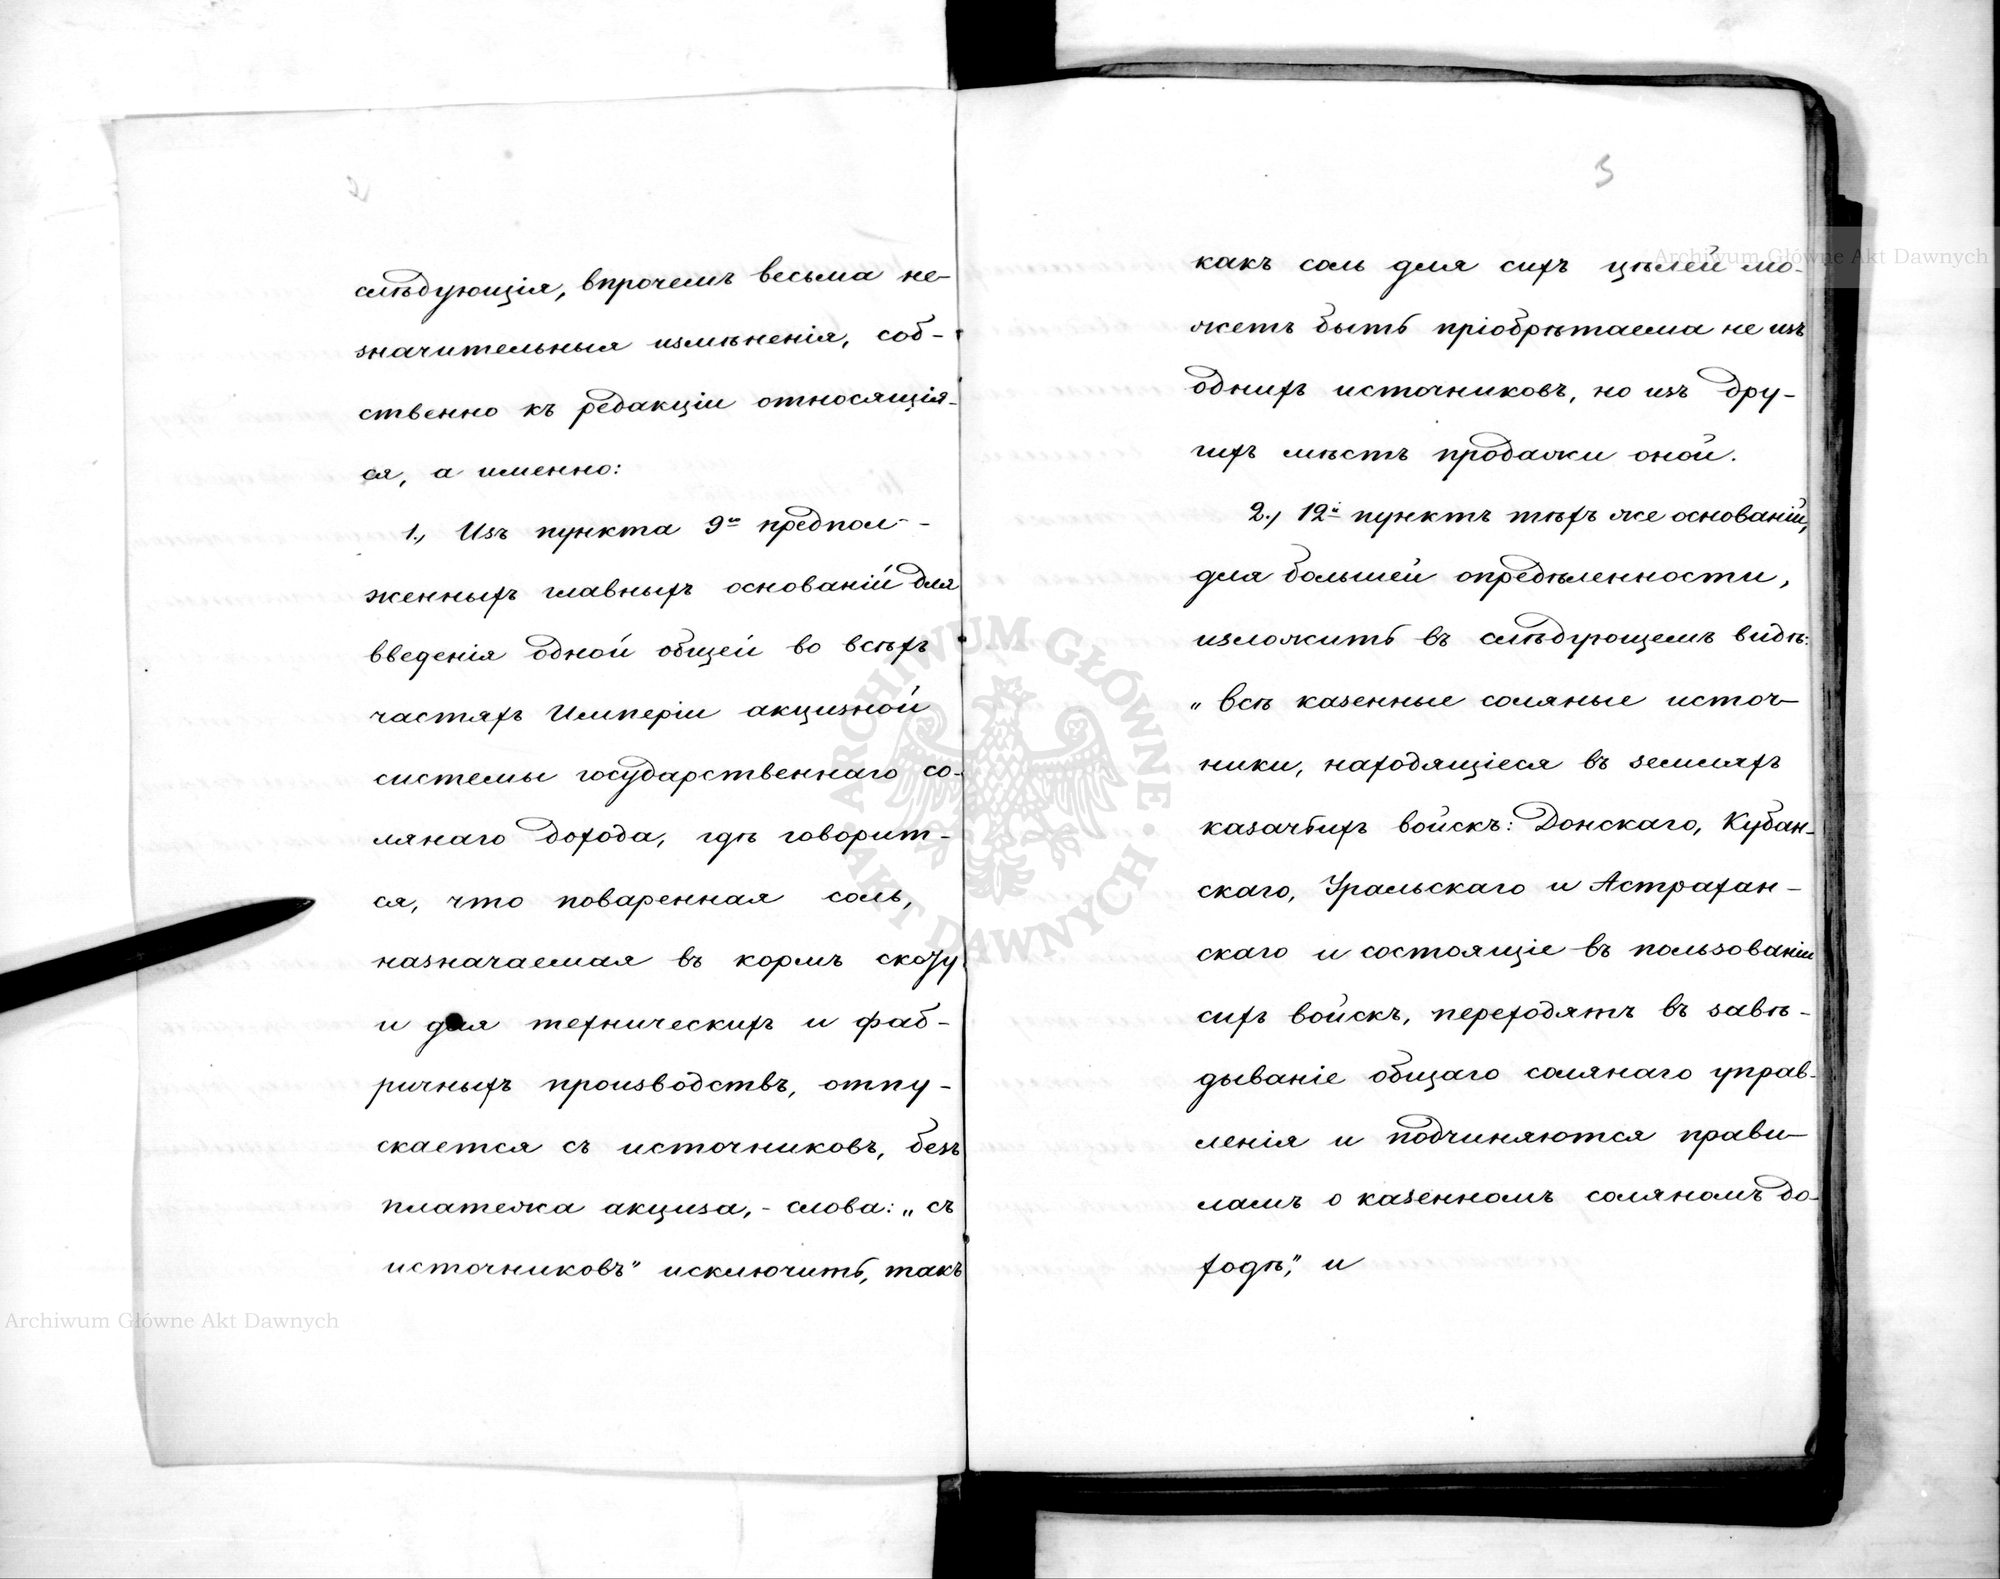 2
слѣдующія, впрочемъ весьма не-
значительныя измѣненія, соб-
ственно къ редакціи относящія-
ся, а именно:
1., Изъ пункта 9го предпол-
женныхъ главныхъ основаній для
введенія одной общей во всѣхъ
частяхъ Имперіи акцизной
системы государственнаго со-
лянаго дохода, гдѣ говорит-
ся, что поваренная соль,
назначаемая въ кормъ скоту
и для техническихъ и фаб-
ричныхъ производствъ, отпу-
скается съ источниковъ, безъ
платежа акциза, - слова: „съ
источниковъ" исключить, такъ
3
какъ соль для сихъ цѣлей мо-
жетъ быть пріобрѣтаема не изъ
однихъ источниковъ, но изъ дру-
гихъ мѣстъ продажи оной.
2., 12й пунктъ тѣхъ же основаній,
для большей опредѣленности,
изложить въ слѣдующемъ видѣ:
„всѣ казенные соляные источ-
ники, находящіеся въ земляхъ
казачьихъ войскъ: Донскаго, Кубан-
скаго, Уральскаго и Астрахан-
скаго и состоящіе въ пользованіи
сихъ войскъ, переходятъ въ завѣ-
дываніе общаго солянаго управ-
ленія и подчиняются прави-
ламъ о казенномъ соляномъ до-
ходѣ," и
Archiwum Główne Akt Dawnych
ARCHIWUM GŁÓWNE AKT DAWNYCH
Archiwum Główne Akt Dawnych